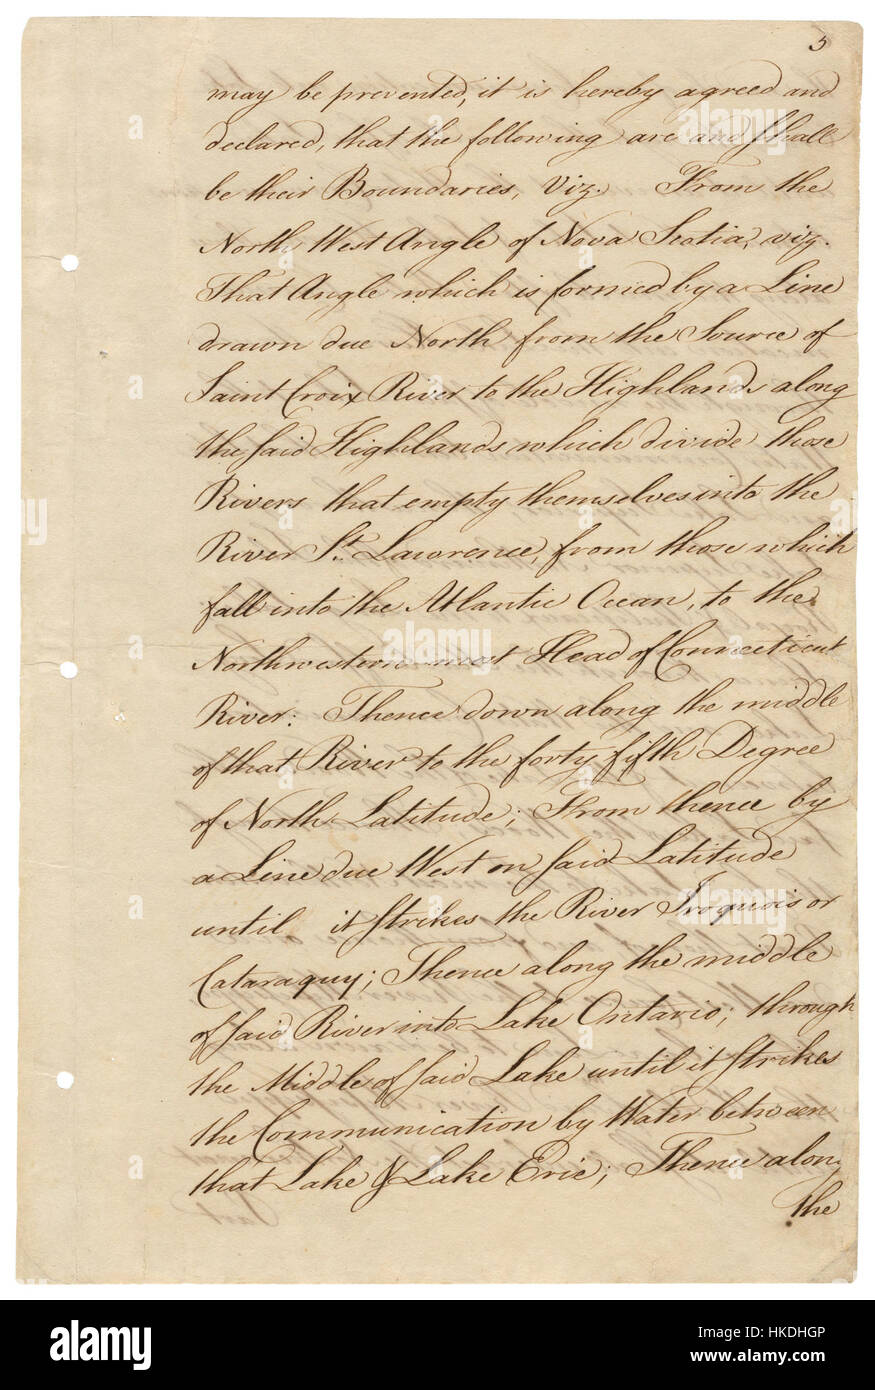 5
may be prevented, it is hereby agreed and
declared, that the following are and shall
be their Boundaries, Viz. From the
North West Angle of Nova Scotia, viz.
That Angle which is formed by a Line
drawn due North from the Source of
Saint Croix River to the Highlands along
the said Highlands which divide those
Rivers that empty themselves into the
River St. Lawrence, from those which
fall into the Atlantic Ocean, to the
Northwestern-most Head of Connecticut
River: Thence down along the middle
of that River to the forty fifth Degree
of North Latitude; From thence by
a Line due West on said Latitude
until it strikes the River Iroquois or
Cataraquy; Thence along the middle
of said River into Lake Ontario; through
the Middle of said Lake until it strikes
the Communication by Water between
that Lake & Lake Erie; Thence along
the
alamy
Image ID: HKDHGP
www.alamy.com